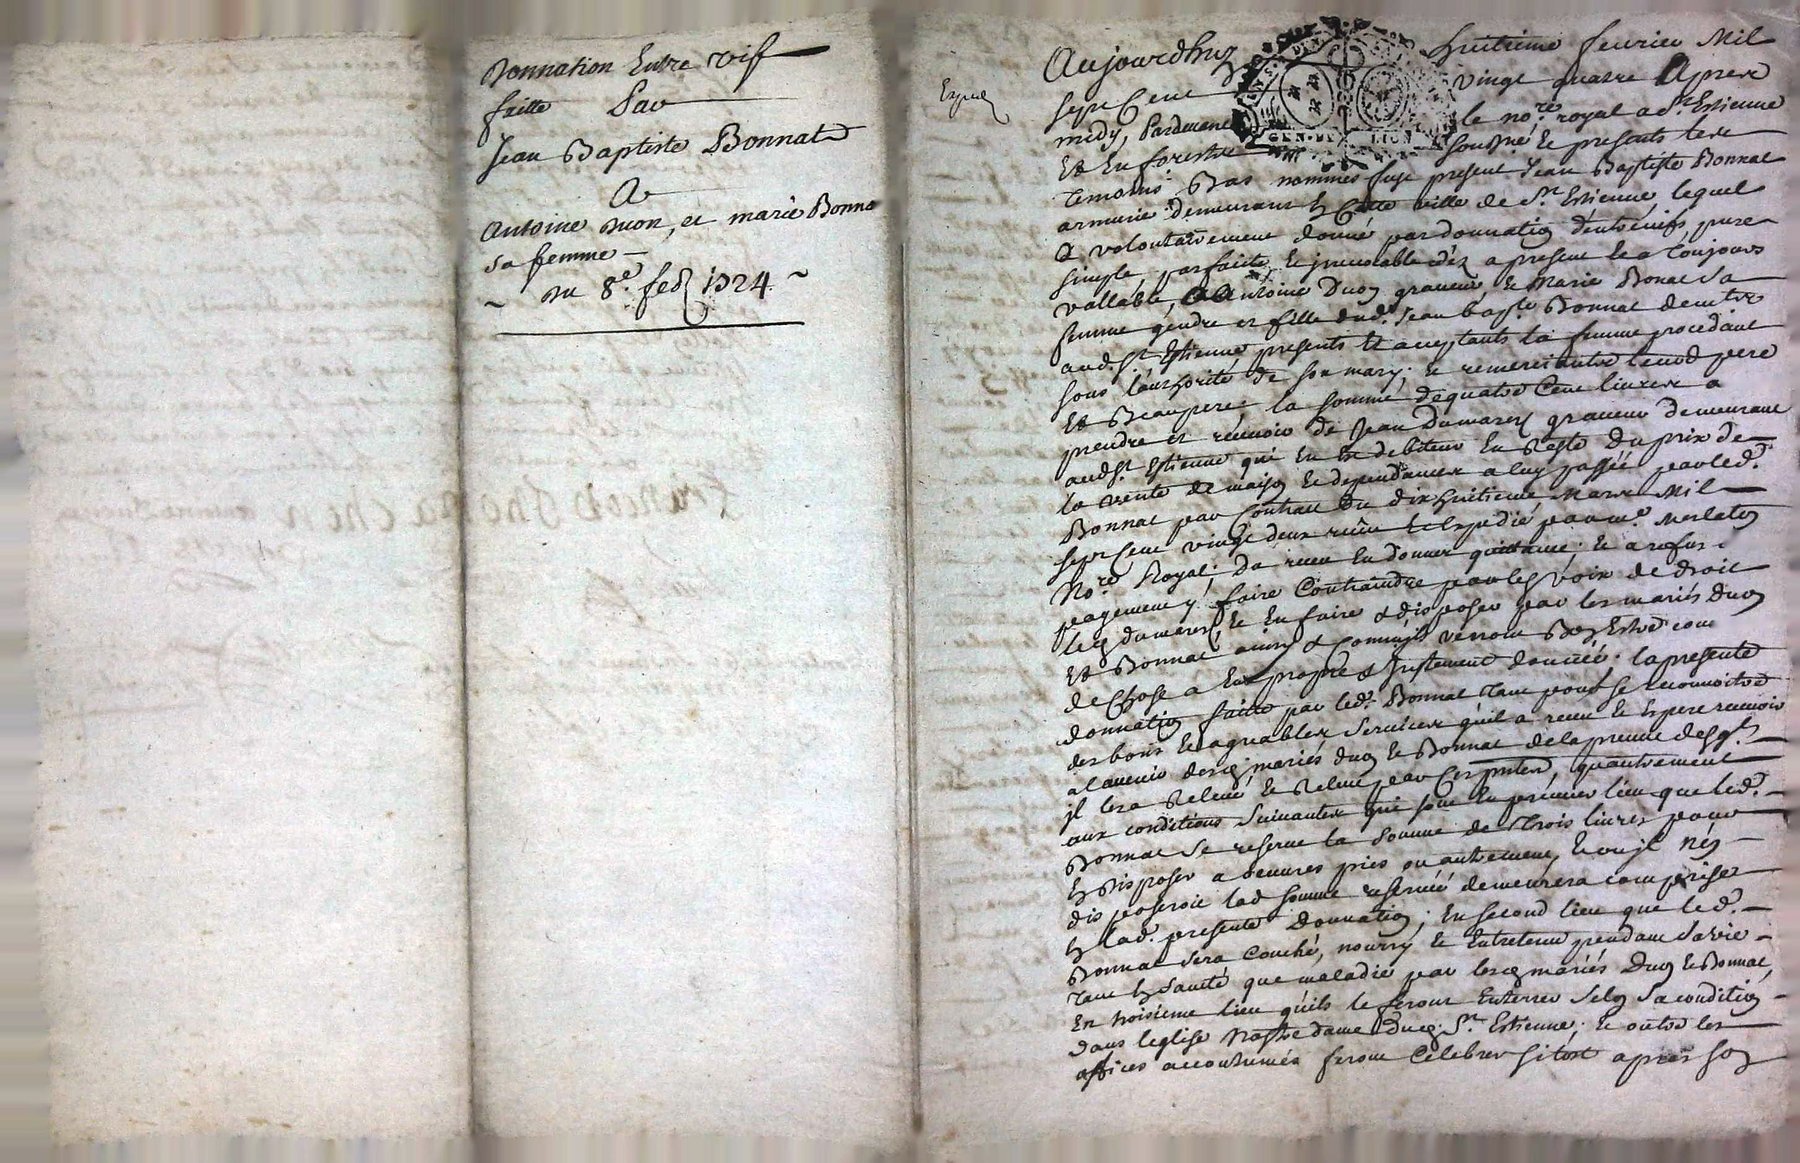 Donnation Entre vif
faitte Par
Jean Baptiste Bonnat
A
Antoine Duon, et marie Bonna
sa femme
~ Du 8.e feb 1724 ~
Aujourdhuy huitieme fevrier Mil
sept Cent vingt quatre Apres
midy, Pardevant le no.re royal a S.t Estienne
Et En forestz soussigné Et presents les
temoins Bas nommés fust present Jean Baptiste Bonnat
armurier demeurant En Cette ville de S.t Estienne, lequel
A volontairement donné par donnation d'entrevifs, pure
simple parfaite, Et irrevocable dez a present Et a toujours
vallable, a Antoine Duon graveur Et Marie Bonat sa
femme gendre et fille dud. Jean bap.te Bonnat demeurants
aud. S.t Estienne, presents Et aceptants la femme procedant
sous l'authorité de son mary; Et remerciants leurd pere
Et Beaupere, la somme de quatre Cent livres a
prendre et recevoir de Jean Damarez graveur demeurant
aud S.t Estienne qui En Est debiteur En Reste du prix de
la vente de maison Et dependances a luy passée par led.
Bonnat par Contrat du dix huitieme Mars Mil
sept Cent vingt deux receu Et Expedié par me. Merlaton
No.re Royal; Du receu En donner quittance; Et a refus
payement y faire Contraindre par les voix de droit
led damarez, Et En faire & disposer par les mariés Duon
Et Bonnat ainsy & Comme ils verront Bon Estre comme
de Chose a Eux propre & justement donnée; la presente
donnation faitte par led. Bonnat tant pour se reconnoitre
des bons Et agreables services qu'il a receu Et Espere recevoir
a l'avenir desd mariés Duon Et Bonnat de la preuve desq.ls
il les a Relevé, Et Releve par Ces p.ntes, qu'autrement
aux conditions suivantes qui sont En premier lieu que led.
Bonnat se reserve la somme de Trois livres pour
En Disposer a oeuvres pies ou autrement, Et ou il n'en
disposeroit lad somme reservée demeurera comprise
En lad. presente donnation; En second lieu que led.
Bonnat sera Couché, nourry Et Entretenu pendant sa vie
tant En santé que maladie par lesd mariés Duon Et Bonnat,
En troisieme lieu qu'ils le feront Enterrer selon sa condition
dans l'eglise Nostre dame Dud. S.t Estienne; Et outre les
offices accoutumés feront Celebrer sitost apres son